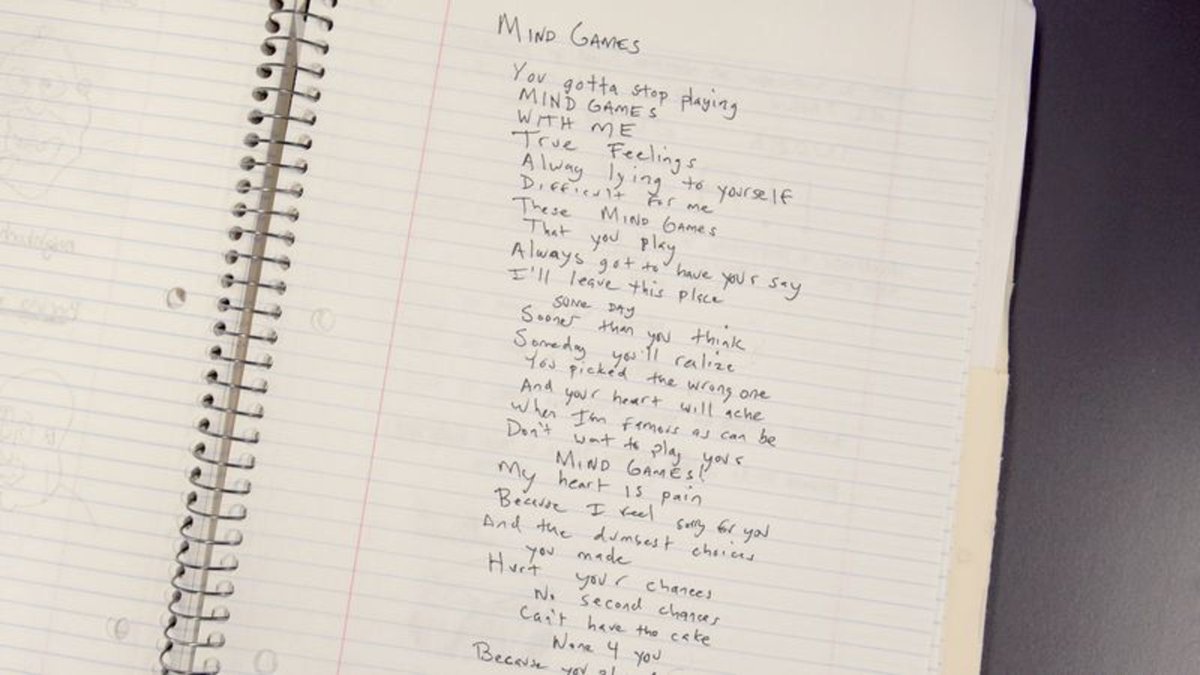 MIND GAMES
You gotta stop playing
MIND GAMES
WITH ME
True Feelings
Alway lying to yourself
Difficult for me
These MIND GAMES
That you play
Always got to have your say
I'll leave this place
SOME DAY
Sooner than you think
Someday you'll realize
You picked the wrong one
And your heart will ache
When I'm famous as can be
Don't want to play your
MIND GAMES!
My heart is pain
Because I feel sorry for you
And the dumbest choices
you made
Hurt your chances
No second chances
Can't have the cake
None 4 you
Because you